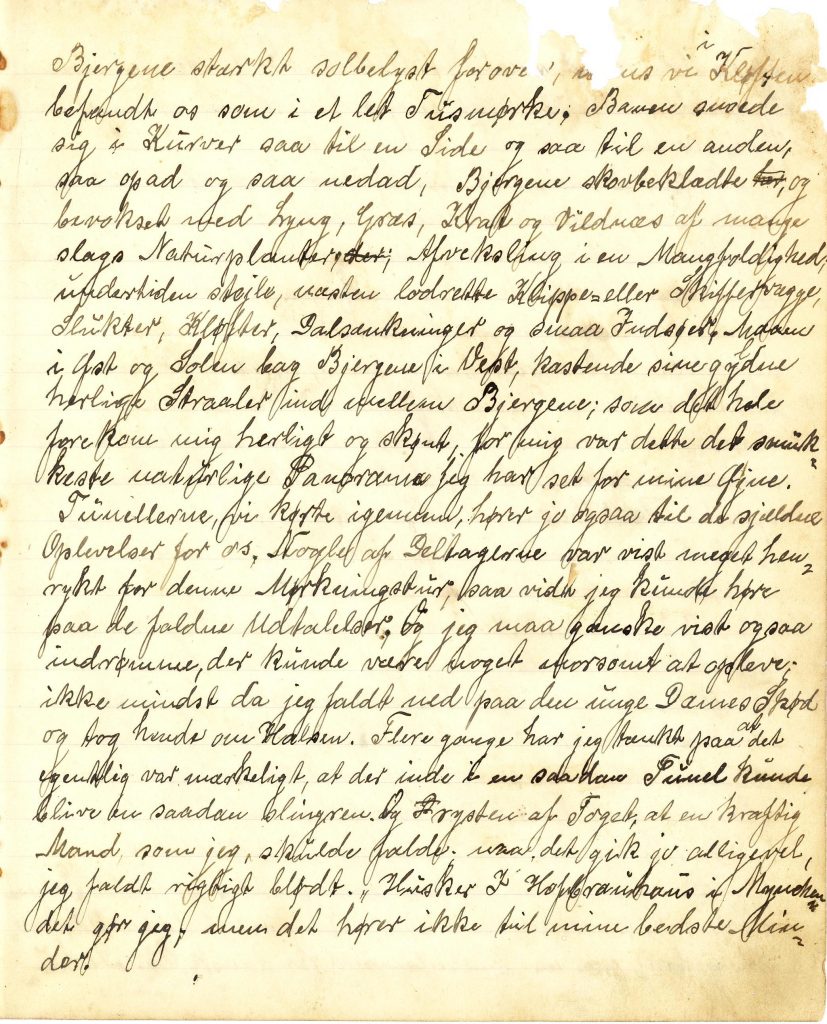 Bjergene stærkt solbelyst foroven, vi i Kløften
befandt os som i et let Tusmørke. Banen snoede
sig i Kurver saa til en Side og saa til en anden,
saa opad og saa nedad, Bjergene skovbeklædte og
bevokset med Lyng, Græs, Krat og Vildnæs af mange
slags Naturplanter, Afveksling i en Mangfoldighed,
undertiden stejle, næsten lodrette Klippe- eller Skiffervægge,
Slukter, Kløfter, Dalsænkninger og smaa Indsøer, Maanen
i Øst og Solen bag Bjergene i Vest, kastende sine gydne
herlige Straaler ind mellem Bjergene; som det hele
forekom mig herligt og skønt, for mig var dette det smuk-
keste naturlige Panorama jeg har set for mine Øjne.
Tunellerne, vi kørte igennem, hører jo ogsaa til de sjældne
Oplevelser for os. Nogle af Deltagerne var vist meget hen-
rykt for denne Mørkningstur, saa vidt jeg kunde høre
paa de faldne Udtalelser, Og jeg maa ganske vist ogsaa
indrømme, der kunde være noget morsomt at opleve;
ikke mindst da jeg faldt ned paa den unge Dames Skød
og tog hende om Halsen. Flere gange har jeg tænkt paa at det
egentlig var mærkeligt, at der inde i en saadan Tunel kunde
blive en saadan slingren. Og Trysten af Toget, at en kraftig
Mand, som jeg, skulde falde; naa, det gik jo alligevel,
jeg faldt rigtigt blødt. „Husker I Hofbrauhaus i Mynchen"
det gør jeg, men det hører ikke til mine bedste Min-
der.